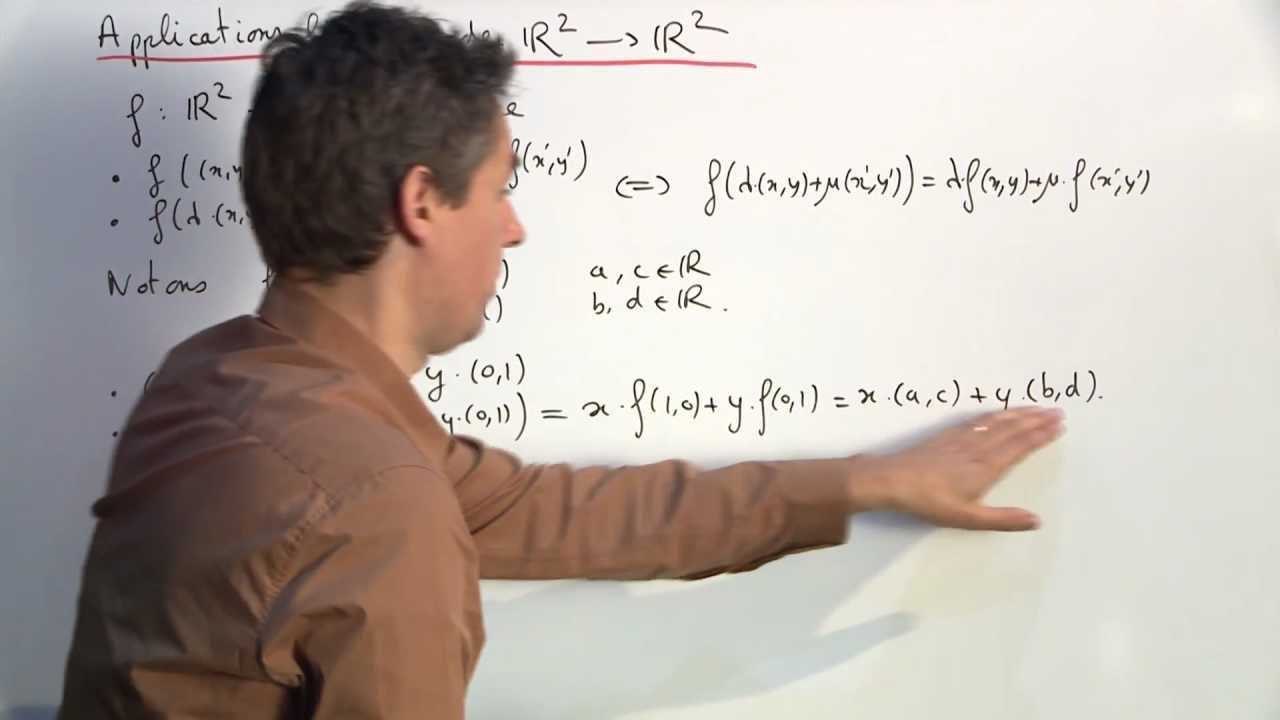 Applications de ℝ² → ℝ²
f : ℝ²
• f ((x,y f(x',y') ⟺ f(λ·(x,y)+μ(x',y')) = λf(x,y)+μ·f(x',y')
• f(λ·(x,
Notons ) a, c ∈ ℝ
) b, d ∈ ℝ.
• y·(0,1)
• y·(0,1)) = x·f(1,0)+y·f(0,1) = x·(a,c)+y·(b,d).